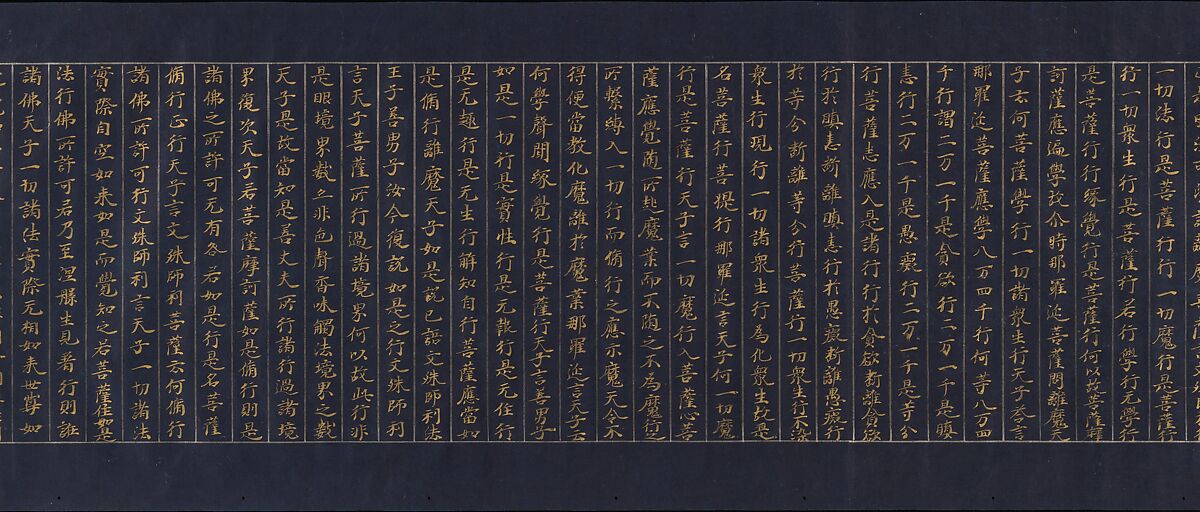 一切法行是菩薩行行一切魔行是菩薩行
行一切衆生行是菩薩行若行學行无學行
是菩薩行行緣覺行是菩薩行何以故菩薩摩
訶薩應遍學故尒時那羅延菩薩問離魔天
子云何菩薩學行一切諸衆生行天子荅言
那羅延菩薩應學八万四千行何等八万四
千行謂二万一千是貪欲行二万一千是瞋
恚行二万一千是愚癡行二万一千是等分
行菩薩志應入是諸行行於貪欲斷離貪欲
行於瞋恚斷離瞋恚行行於愚癡斷離愚癡行
於等分斷離等分行菩薩行一切衆生行不染
衆生行現行一切諸衆生行為化衆生故是
名菩薩行菩提行那羅延言天子何一切魔
行是菩薩行天子言一切魔行入菩薩心菩
薩應覺隨所起魔業而不隨之不為魔行之
所繫縛入一切行而脩行之應示魔天令不
得便當教化魔離於魔業那羅延言天子云
何學聲聞緣覺行是菩薩行天子言善男子
如是一切行是實性行是无散行是无住行
是无趣行是无生行解知自行菩薩應當如
是脩行離魔天子如是說已語文殊師利法
王子善男子汝今復說如是之行文殊師利
言天子菩薩所行過諸境界何以故此行非
是眼境界數亦非色聲香味觸法境界之數
天子是故當知是善丈夫所行諸行過諸境
界復次天子若菩薩摩訶薩如是脩行則是
諸佛之所許可无有咎若如是行是名菩薩
脩行正行天子言文殊師利菩薩云何脩行
諸佛所許可行文殊師利言天子一切諸法
實際自空如來如是而覺知之若菩薩住如是
法行佛所許可若乃至涅槃生見著行則誑
諸佛天子一切諸法實際无相如來世尊如